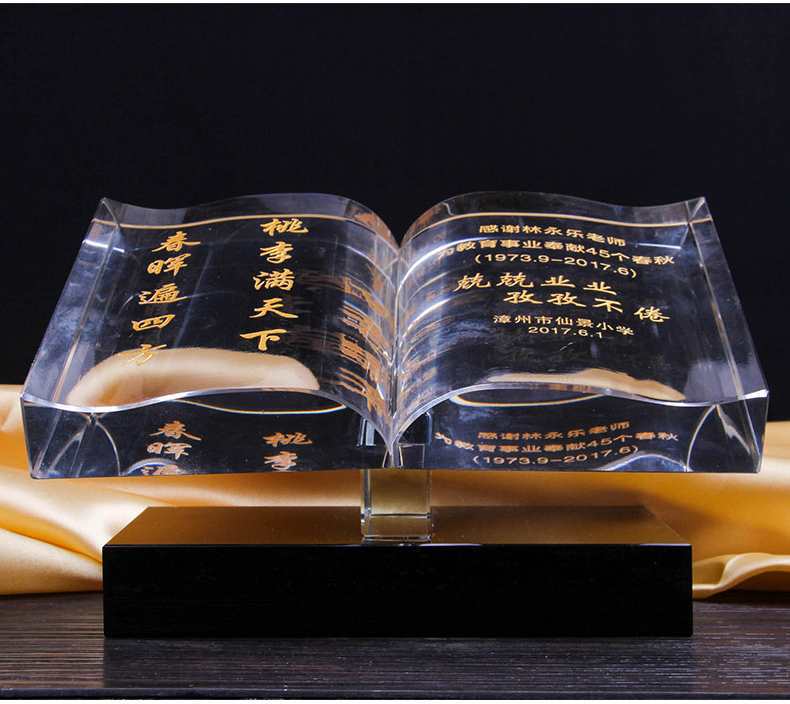 桃李满天下
春晖遍四方
感谢林永乐老师
为教育事业奉献45个春秋
(1973.9-2017.6)
兢兢业业
孜孜不倦
漳州市仙景小学
2017.6.1
春晖遍
桃李
感谢林永乐老师
为教育事业奉献45个春秋
(1973.9-2017.6)